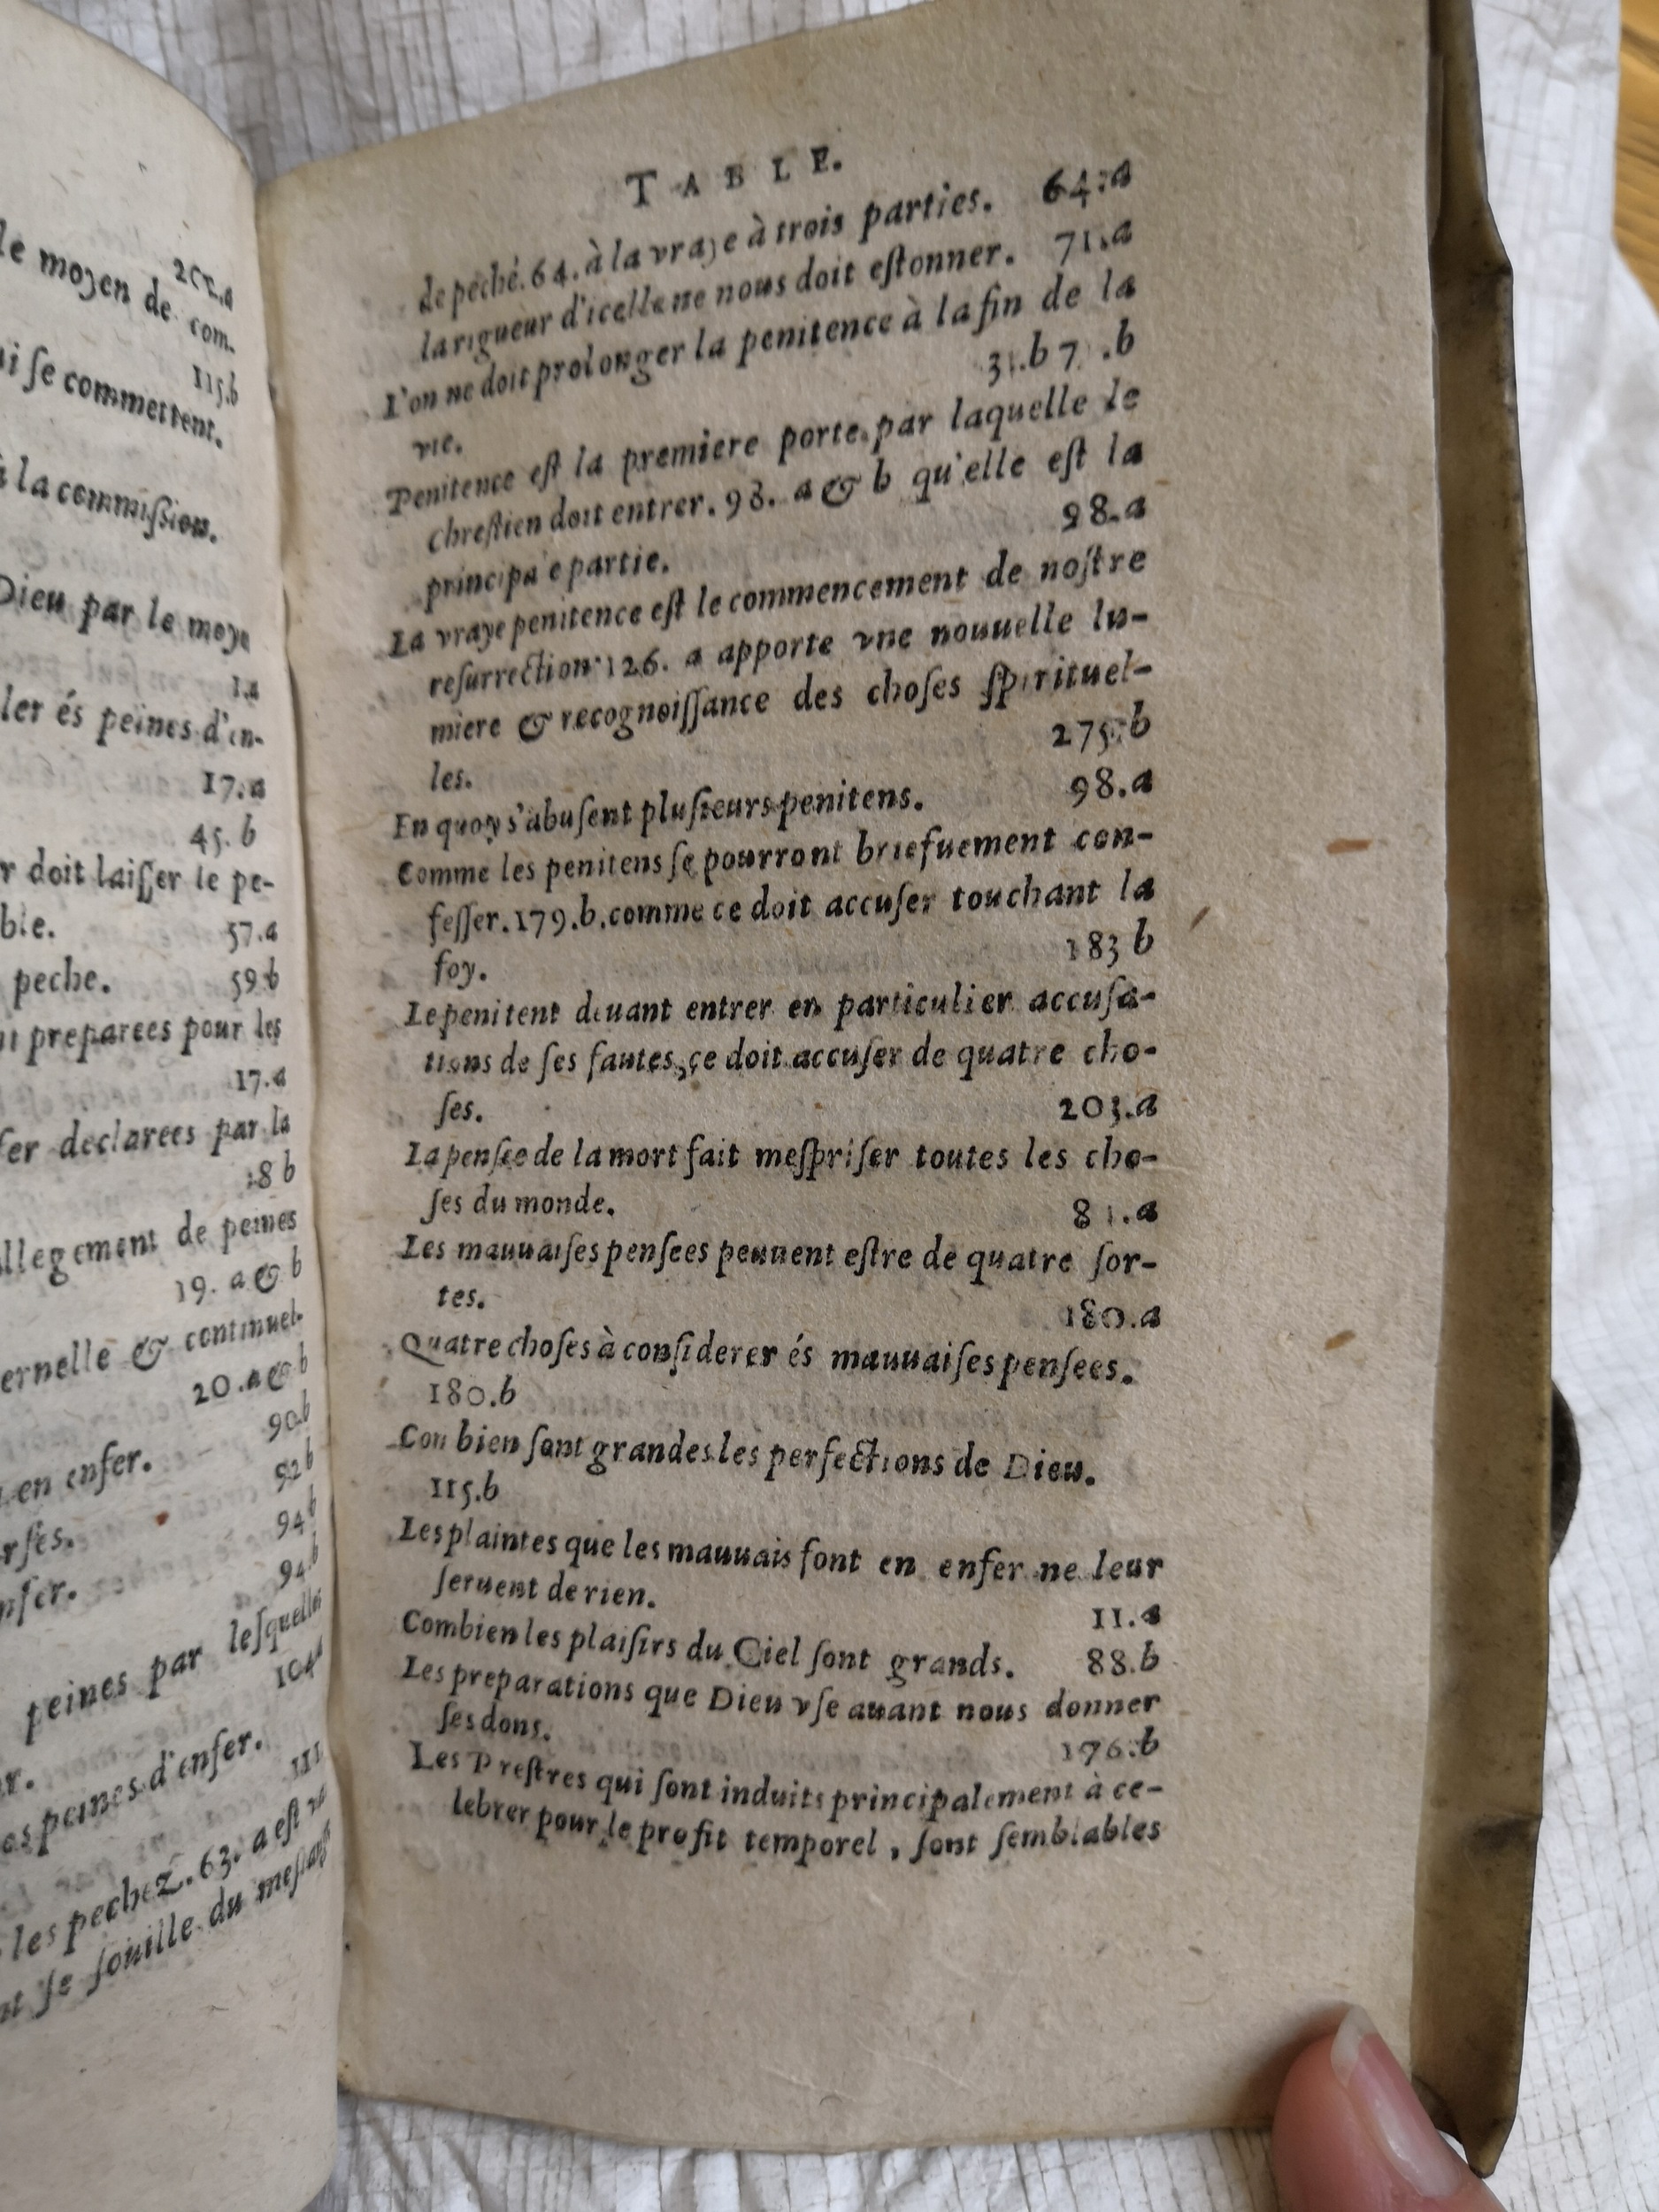 2.a
le moyen de com-
115.b
i ſe commettent.
à la commiſsion.
Dieu par le moyẽ
1.a
ler és peines d'en-
17.a
45.b
r doit laiſſer le pe-
ble. 57.a
peche. 59 b
nt preparees pour les
17.a
ſer declarees par la
18 b
llegement de peines
19. a & b
ernelle & continuel-
20.a & b
90.b
en enfer. 92 b
rſes. 94 b
nfer. 94.b
peines par leſquelles
104
r.
es peines d'enfer. 111
les pechez. 63. a eſt
nt ſe ſouille du
TABLE.
de peché. 64. à la vraye à trois parties. 64.a
la rigueur d'icelle ne nous doit eſtonner. 71.a
L'on ne doit prolonger la penitence à la fin de la
vie. 31.b 7 .b
Penitence eſt la premiere porte par laquelle le
chreſtien doit entrer. 98. a & b qu'elle eſt la
principa e partie. 98.a
La vraye penitence eſt le commencement de noſtre
reſurrection 126. a apporte vne nouuelle lu-
miere & recognoiſſance des choſes ſpirituel-
les. 275.b
En quoy s'abuſent pluſieurs penitens. 98.a
Comme les penitens ſe pourront briefuement con-
feſſer. 179.b. comme ce doit accuſer touchant la
foy. 183 b
Le penitent deuant entrer en particulier accuſa-
tions de ſes fautes, ce doit accuſer de quatre cho-
ſes. 203.a
La penſee de la mort fait meſpriſer toutes les cho-
ſes du monde. 81.a
Les mauuaiſes penſees peuuent eſtre de quatre ſor-
tes. 180.a
Quatre choſes à conſiderer és mauuaiſes penſees.
180.b
Con bien ſont grandes les perfections de Dieu.
115.b
Les plaintes que les mauuais font en enfer ne leur
ſeruent de rien. 11.a
Combien les plaiſirs du Ciel ſont grands. 88.b
Les preparations que Dieu vſe auant nous donner
ſes dons. 176.b
Les Preſtres qui ſont induits principalement à ce-
lebrer pour le profit temporel, ſont ſemblables